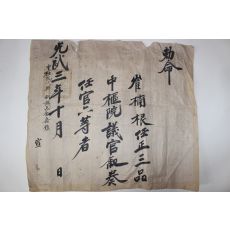 勅命
崔楠根任正三品
中樞院議官敍奏
任官六等者
光武三年十月 日